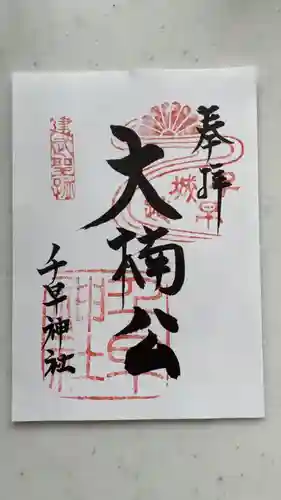 奉拝
大楠公
千早神社
建武聖跡
千早城
千早神社